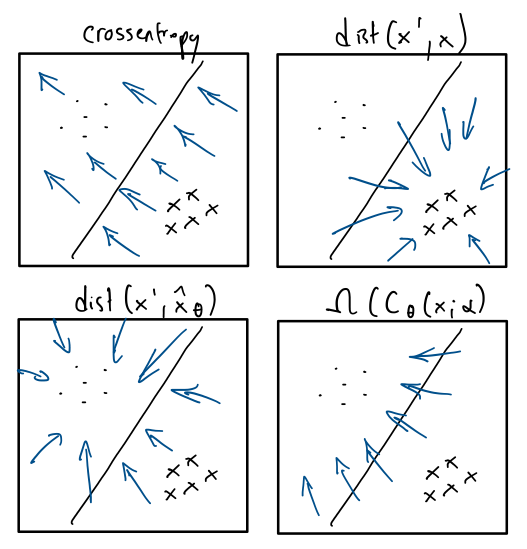 crossentropy
dist(x', x)
dist(x', x̂_θ)
Ω(C_θ(x; α)